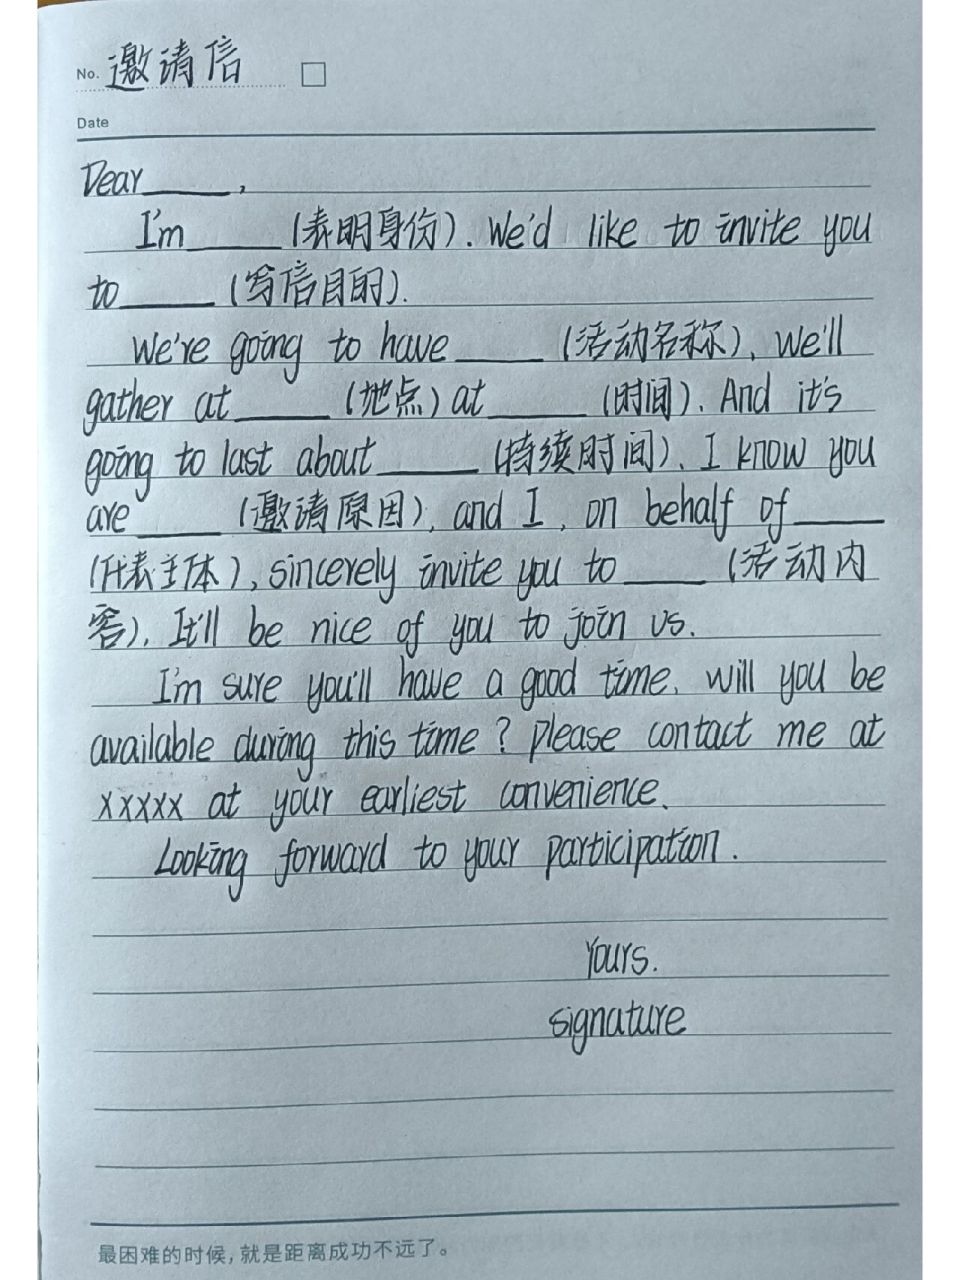 No. 邀请信
Date
Dear_____,
I'm_____(表明身份). We'd like to invite you
to_____(写信目的).
We're going to have_____(活动名称). We'll
gather at_____(地点) at_____(时间). And it's
going to last about_____(持续时间). I know you
are_____(邀请原因), and I, on behalf of_____
(代表主体), sincerely invite you to_____(活动内
容). It'll be nice of you to join us.
I'm sure you'll have a good time. Will you be
available during this time? Please contact me at
xxxxx at your earliest convenience.
Looking forward to your participation.
Yours.
signature
最困难的时候,就是距离成功不远了。